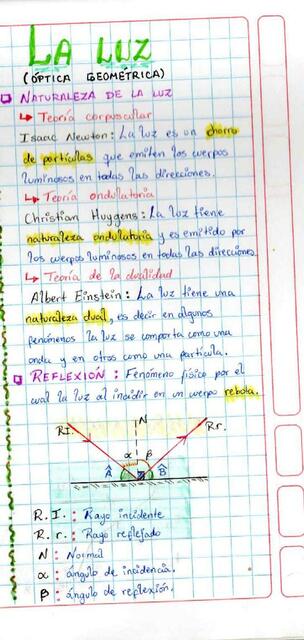 LA LUZ
(ÓPTICA GEOMÉTRICA)
NATURALEZA DE LA LUZ
Teoría corpuscular
Isaac Newton: La luz es un chorro
de partículas que emiten los cuerpos
luminosos en todas las direcciones.
Teoría ondulatoria
Christian Huygens: La luz tiene
naturaleza ondulatoria y es emitido por
los cuerpos luminosos en todas las direcciones
Teoría de la dualidad
Albert Einstein: La luz tiene una
naturaleza dual, es decir en algunos
fenómenos la luz se comporta como una
onda y en otros como una partícula.
REFLEXIÓN: Fenómeno físico por el
cual la luz al incidir en un cuerpo rebota.
R.I. N R.r.
α β
Â B̂
R.I.: Rayo incidente
R.r.: Rayo reflejado
N: Normal
α: ángulo de incidencia.
β: ángulo de reflexión.